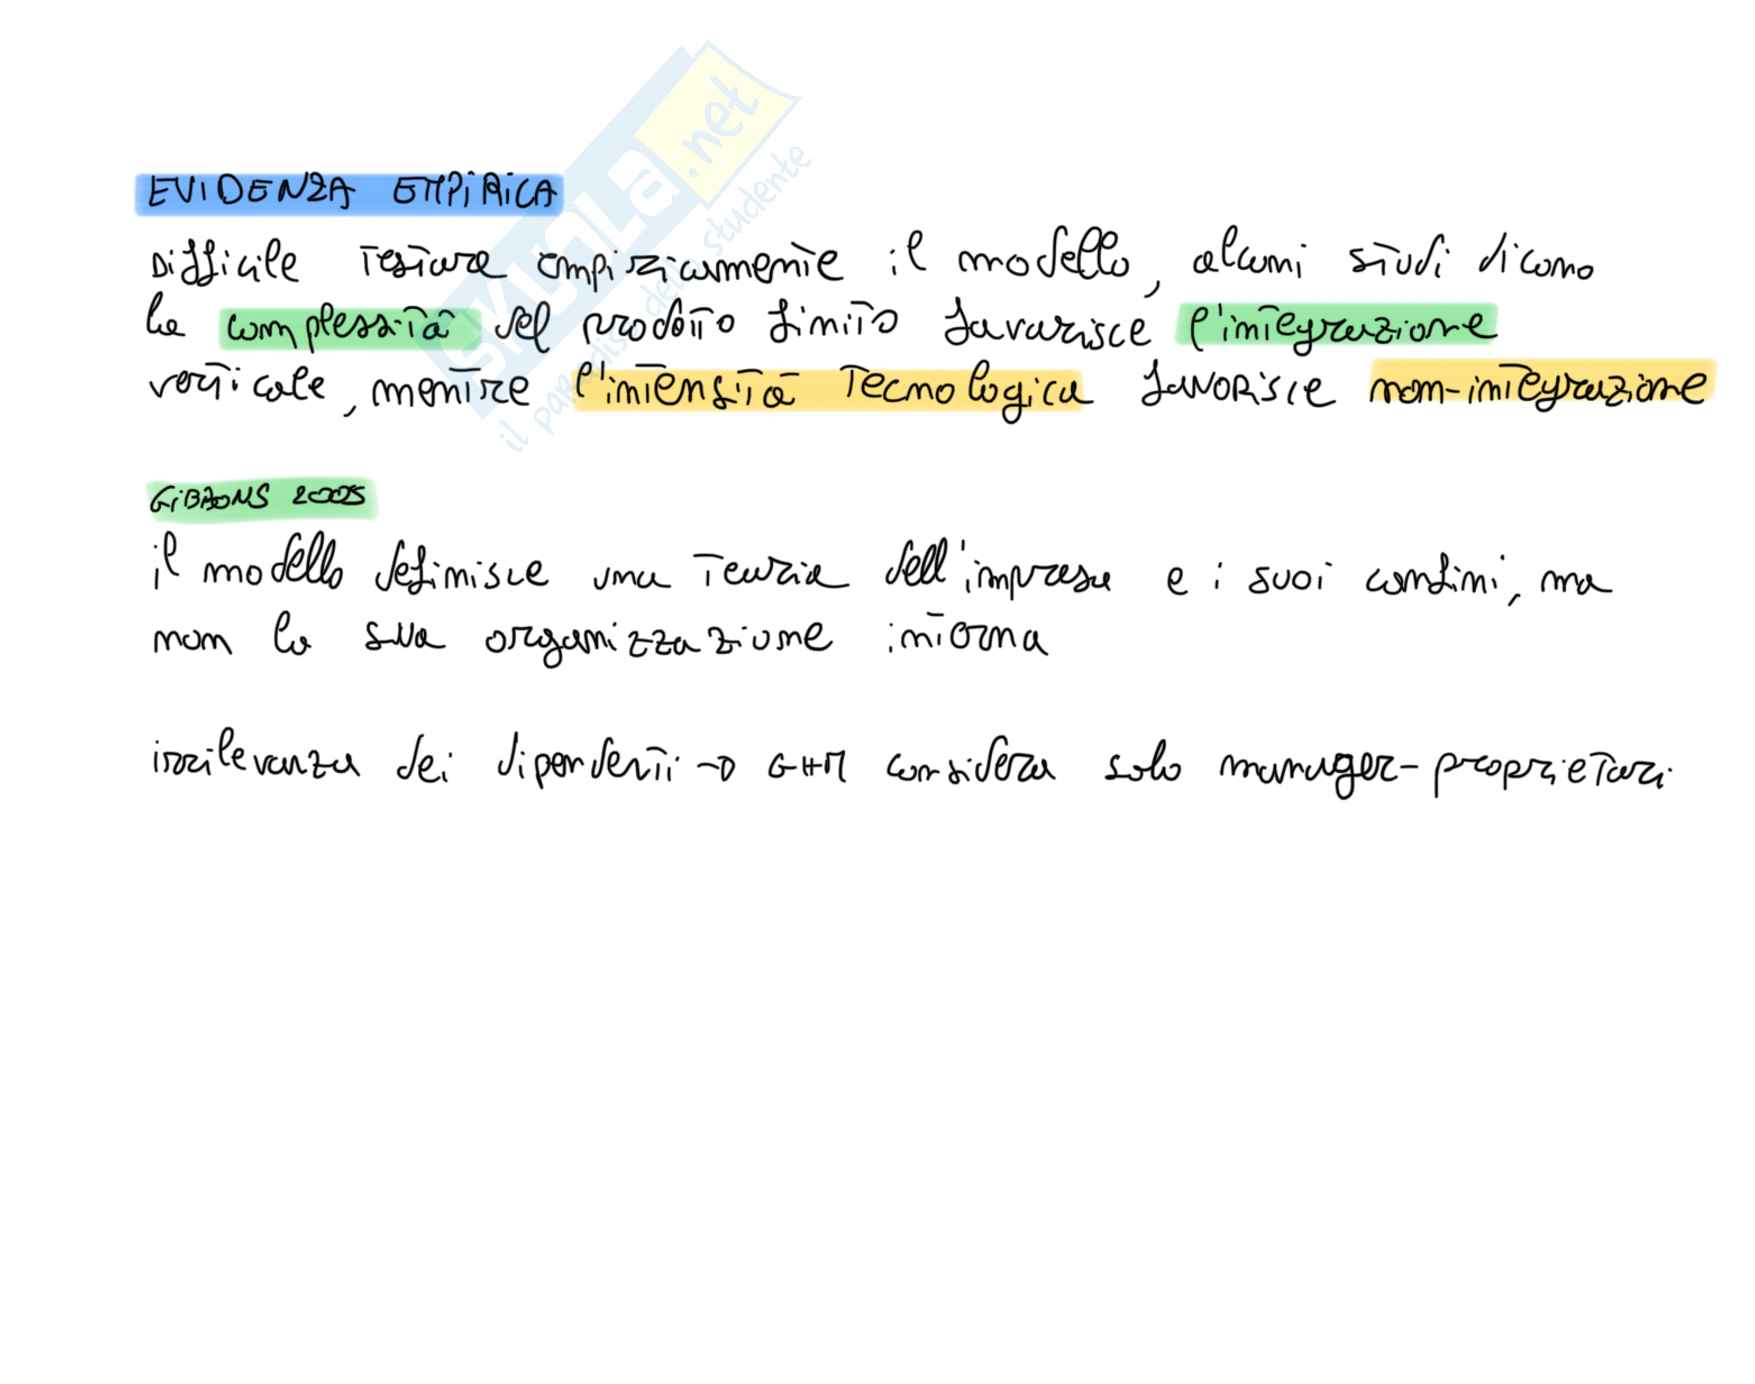 EVIDENZA EMPIRICA
Difficile testare empiricamente il modello, alcuni studi dicono
la complessità del prodotto finito favorisce l'integrazione
verticale, mentre l'intensità tecnologica favorisce non-integrazione
GIBBONS 2005
il modello definisce una teoria dell'impresa e i suoi confini, ma
non la sua organizzazione interna
irrilevanza dei dipendenti → GHM considera solo manager-proprietari
SKUOLA.net
il paradiso dello studente